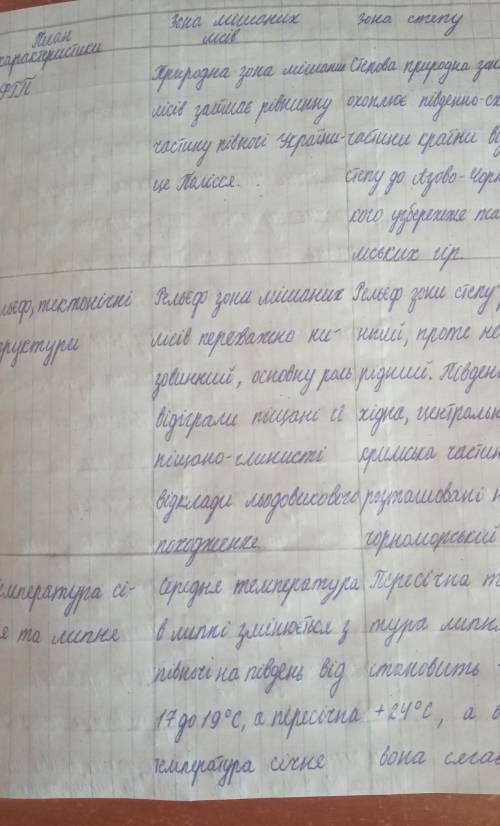 План
характеристики
Зона мішаних
лісів
Зона степу
ФГП
Природна зона мішаних
лісів займає рівнинну
частину півночі України-
це Полісся.
Степова природна зона
охоплює південно-сх
частини країни від
степу до Азово-Чорн
кого узбережжя та
мських гір.
льєф, тектонічні
структури
Рельєф зони мішаних
лісів переважно ни-
зовинний, основну роль
відіграли піщані й
піщано-глинисті
відклади льодовикового
походження
Рельєф зони степу
нний, проте не
рідний. Півден
хідна, централь
кримська частин
розташовані н
чорноморській
емпература сі-
я та липня
Середня температура
в липні змінюється з
півночі на південь від
17 до 19°С, а пересічна
температура січня
Пересічна т
тура липня
становить
+24°С, а в
вона сяга